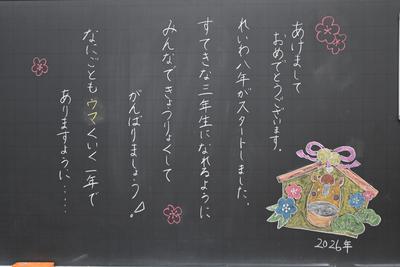 あけまして
おめでとうございます。
れいわ八年がスタートしました。
すてきな三年生になれるように
みんなできょうりょくして
がんばりましょう!
なにごともウマくいく一年で
ありますように‥‥
2026年